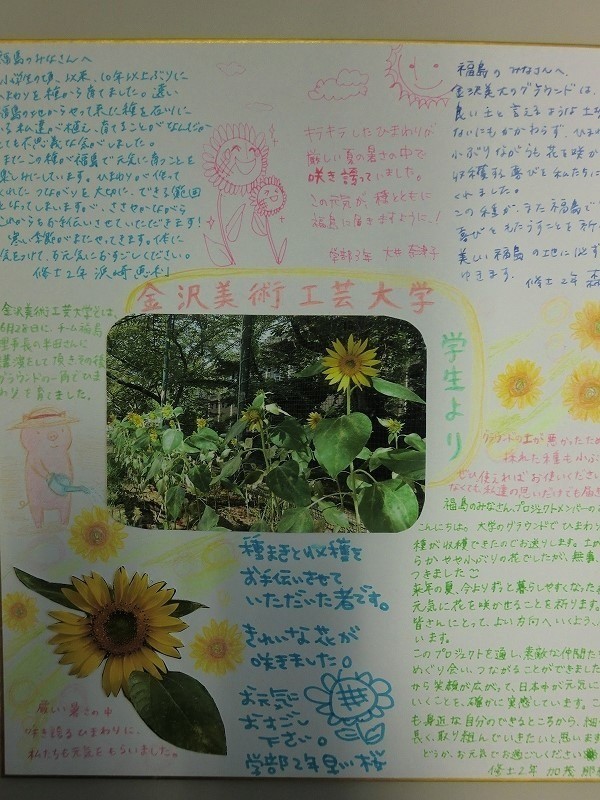 福島のみなさんへ
小学生の頃、以来、10年以上ぶりに
ひまわりを種から育てました。遠い
福島の地からやって来た種を石川に
いる私達が植え、育てることがなんだか
とても不思議な気がしました。
またこの種が福島で元気に育つことを
楽しみにしています。ひまわりが作って
くれたつながりを大切に、できる範囲
となってしまいますが、ささやかながら
これからもお手伝いさせていただきます!
寒い季節がまたやってきます。体に
気をつけて、お元気におすごしください。
修士2年 浜崎
キラキラしたひまわりが
厳しい夏の暑さの中で
咲き誇っていました。
この元気が、種とともに
福島に届きますように、!
学部3年 大井
福島のみなさんへ、
金沢美大のグラウンドは、
良い土と言えるような土
ないにもかかわらず、ひま
小ぶりながらも花を咲か
収穫する喜びを私たちに
くれました。
この種が、うた福島で
喜びをもたらすことを祈
美しい福島の地に必ず
ゆきます。
修士2年 森
金沢美術工芸大学
学生より
金沢美術工芸大学では、
6月28日に、チーム福島
理事長の半田さんに
講演をして頂きその後
グラウンドの一角でひま
わりを育てました。
グラウンドの土が悪かったため
採れた種も小ぶ
ぜひ使えればお使いください
なくても、私達の思いだけでも届
福島のみなさん、プロジェクトメンバーの
こんにちは。大学のグラウンドでひまわり
種が収穫できたのでお送りします。土め
らかやや小ぶりの花でしたが、無事、
つきました
来年の夏、今よりずっと暮らしやすくなった
元気に花を咲かせることを祈ります。
皆さんにとって、よい方向へいくよう、
います。
このプロジェクトを通し、素敵な仲間た
めぐり会い、つながることができました
から笑顔が広がって、日本中が元気に
いくことを、確かに実感しています。こ
も身近な自分のできるところから、細
長く、取り組んでいきたいと思います
どうか、お元気でお過ごしください
修士2年 加茂 那
種まきと収穫を
お手伝いさせて
いただいた者です。
きれいな花が
咲きました。
お元気で
おすごし
下さい。
学部2年 早川 桜
厳しい暑さの中
咲き誇るひまわりに、
私たちも元気をもらいました。